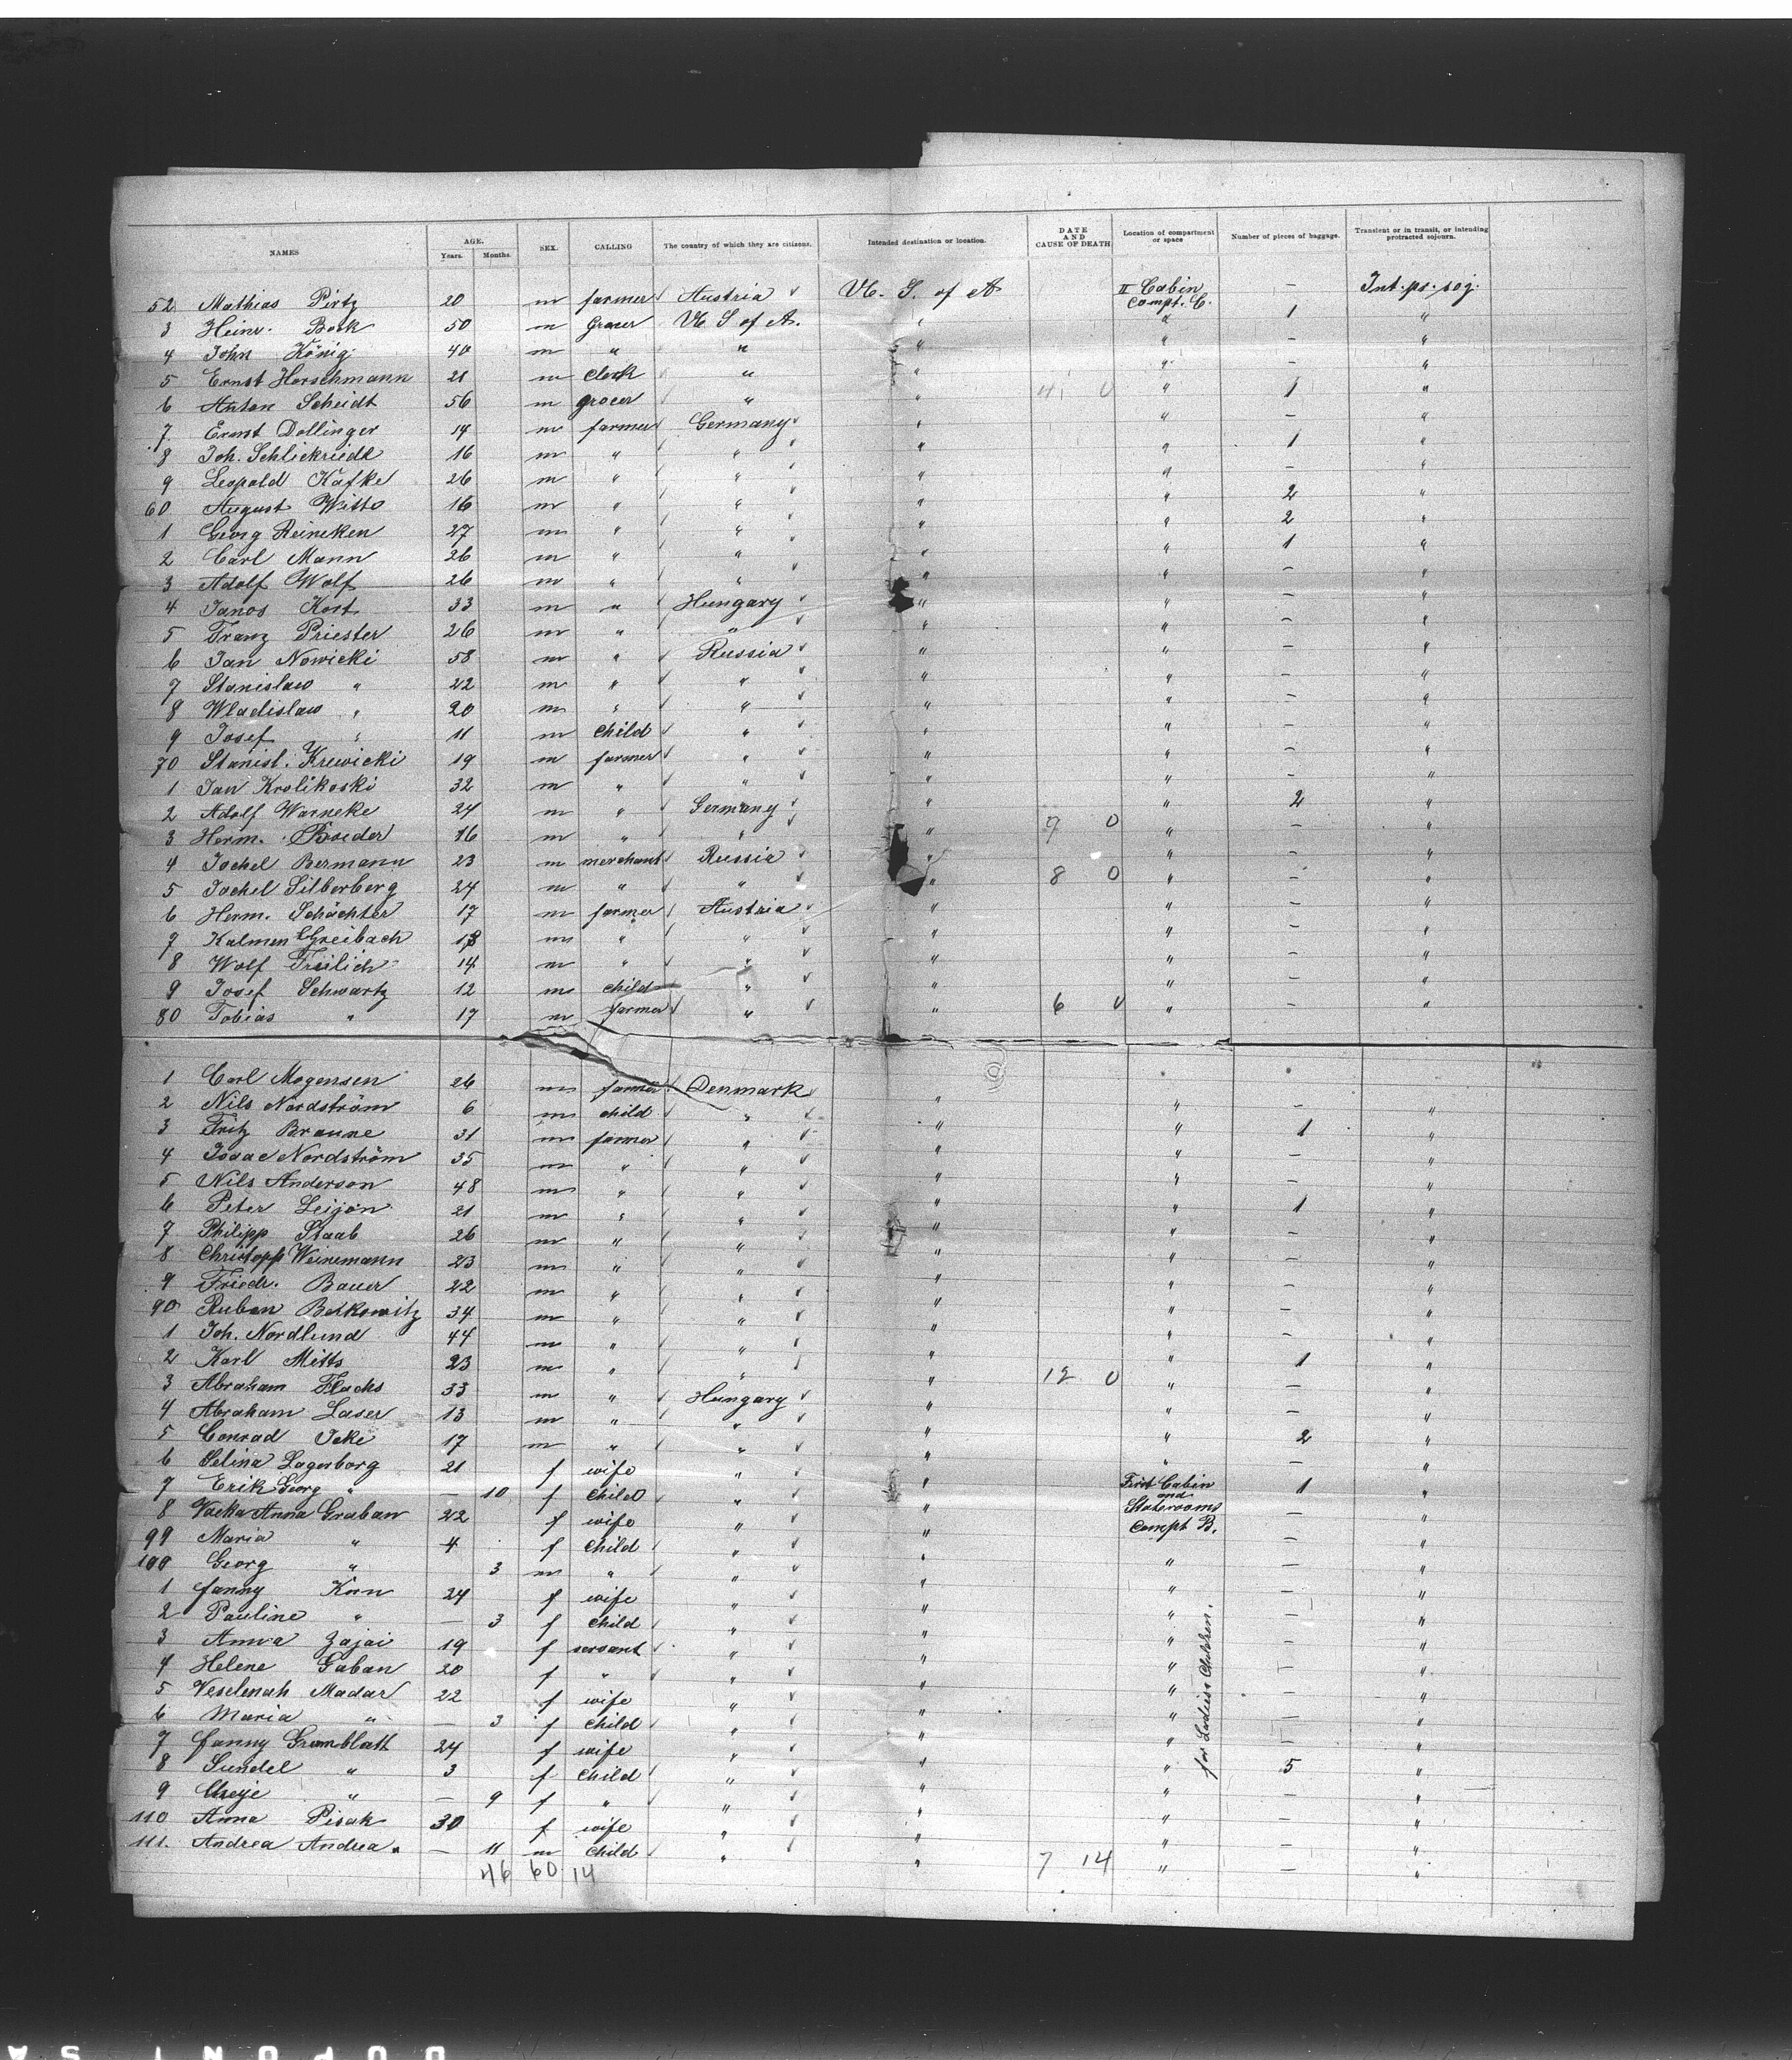 NAMES AGE. Years. Months. SEX. CALLING The country of which they are citizens. Intended destination or location. DATE AND CAUSE OF DEATH Location of compartment or space Number of pieces of baggage. Transient or in transit, or intending protracted sojourn.
52 Mathias Pirtz 20 m farmer Austria U. S. of A II Cabin Compt. C. — Int. pr. soj.
3 Heinr. Bock 50 m Grocer U S of A. " " 1 "
4 John König 40 m " " " " — "
5 Ernst Horschmann 21 m Clerk " " " — "
6 Anton Scheidt 56 m grocer " " 4 0 " 1 "
7 Ernst Dollinger 14 m farmer Germany " " — "
8 Joh. Schlickriede 16 m " " " " 1 "
9 Leopold Kafke 26 m " " " " — "
60 August Witto 16 m " " " " 2 "
1 Georg Reineken 27 m " " " " 2 "
2 Carl Mann 26 m " " " " 1 "
3 Adolf Wolf 26 m " " " " — "
4 Janos Kost 33 m " Hungary " " — "
5 Franz Priester 26 m " " " " — "
6 Jan Nowicki 58 m " Russia " " — "
7 Stanislaw " 22 m " " " " — "
8 Wladislaw " 20 m " " " " — "
9 Josef " 11 m Child " " " — "
70 Stanisl. Krewicki 19 m farmer " " " — "
1 Jan Krolikoski 32 m " " " " — "
2 Adolf Warneke 24 m " Germany " " 2 "
3 Herm. Boeder 16 m " " " 7 0 " — "
4 Jochel Bermann 23 m merchant Russia " " — "
5 Jochel Silberberg 24 m " " " 8 0 " — "
6 Herm. Schächter 17 m farmer Austria " " — "
7 Kalmen Greibach 18 m " " " " — "
8 Wolf Freilich 14 m " " " " — "
9 Josef Schwartz 12 m child " " " — "
80 Tobias " 17 m farmer " " 6 0 " — "
1 Carl Mogensen 26 m farmer Denmark " " — "
2 Nils Nordström 6 m child " " " 1 "
3 Fritz Braune 31 m farmer " " " — "
4 Isaac Nordström 35 m " " " " — "
5 Nils Anderson 48 m " " " " 1 "
6 Peter Leijon 21 m " " " " — "
7 Philipp Staab 26 m " " " " — "
8 Christopp Weinemann 23 m " " " " — "
9 Friedr. Bauer 22 m " " " " — "
90 Ruben Berkowitz 34 m " " " " — "
1 Joh. Nordlund 44 m " " " " 1 "
2 Karl Mitts 23 m " " " 12 0 " — "
3 Abraham Flachs 33 m " Hungary " " — "
4 Abraham Laser 13 m " " " " 2 "
5 Conrad Icke 17 m " " " " — "
6 Selina Lagerborg 21 f wife " " First Cabin and Staterooms Compt B. 1 "
7 Erik Georg " — 10 f Child " " — "
8 Anna Graban 22 f wife " " — "
99 Maria " 4 f Child " " " — "
100 Georg " 3 m " " " " — "
1 fanny Korn 24 f wife " " " — "
2 Pauline " — 3 f Child " " " — "
3 Anna Zajai 19 f servant " " " — "
4 Helene Gaban 20 f " " " " — "
5 Veselenah Madar 22 f wife " " " — "
6 Maria " — 3 f Child " " " — "
7 fanny Grumblatt 24 f wife " " " 5 "
8 Sundel " 3 f Child " " " — "
9 Cheje " — 9 f " " " " — "
110 Anna Pisak 30 f wife " " " — "
111. Andrea Andrea. — 11 m Child " " 7 14 " — "
46 60 14
for Ladies & Children.